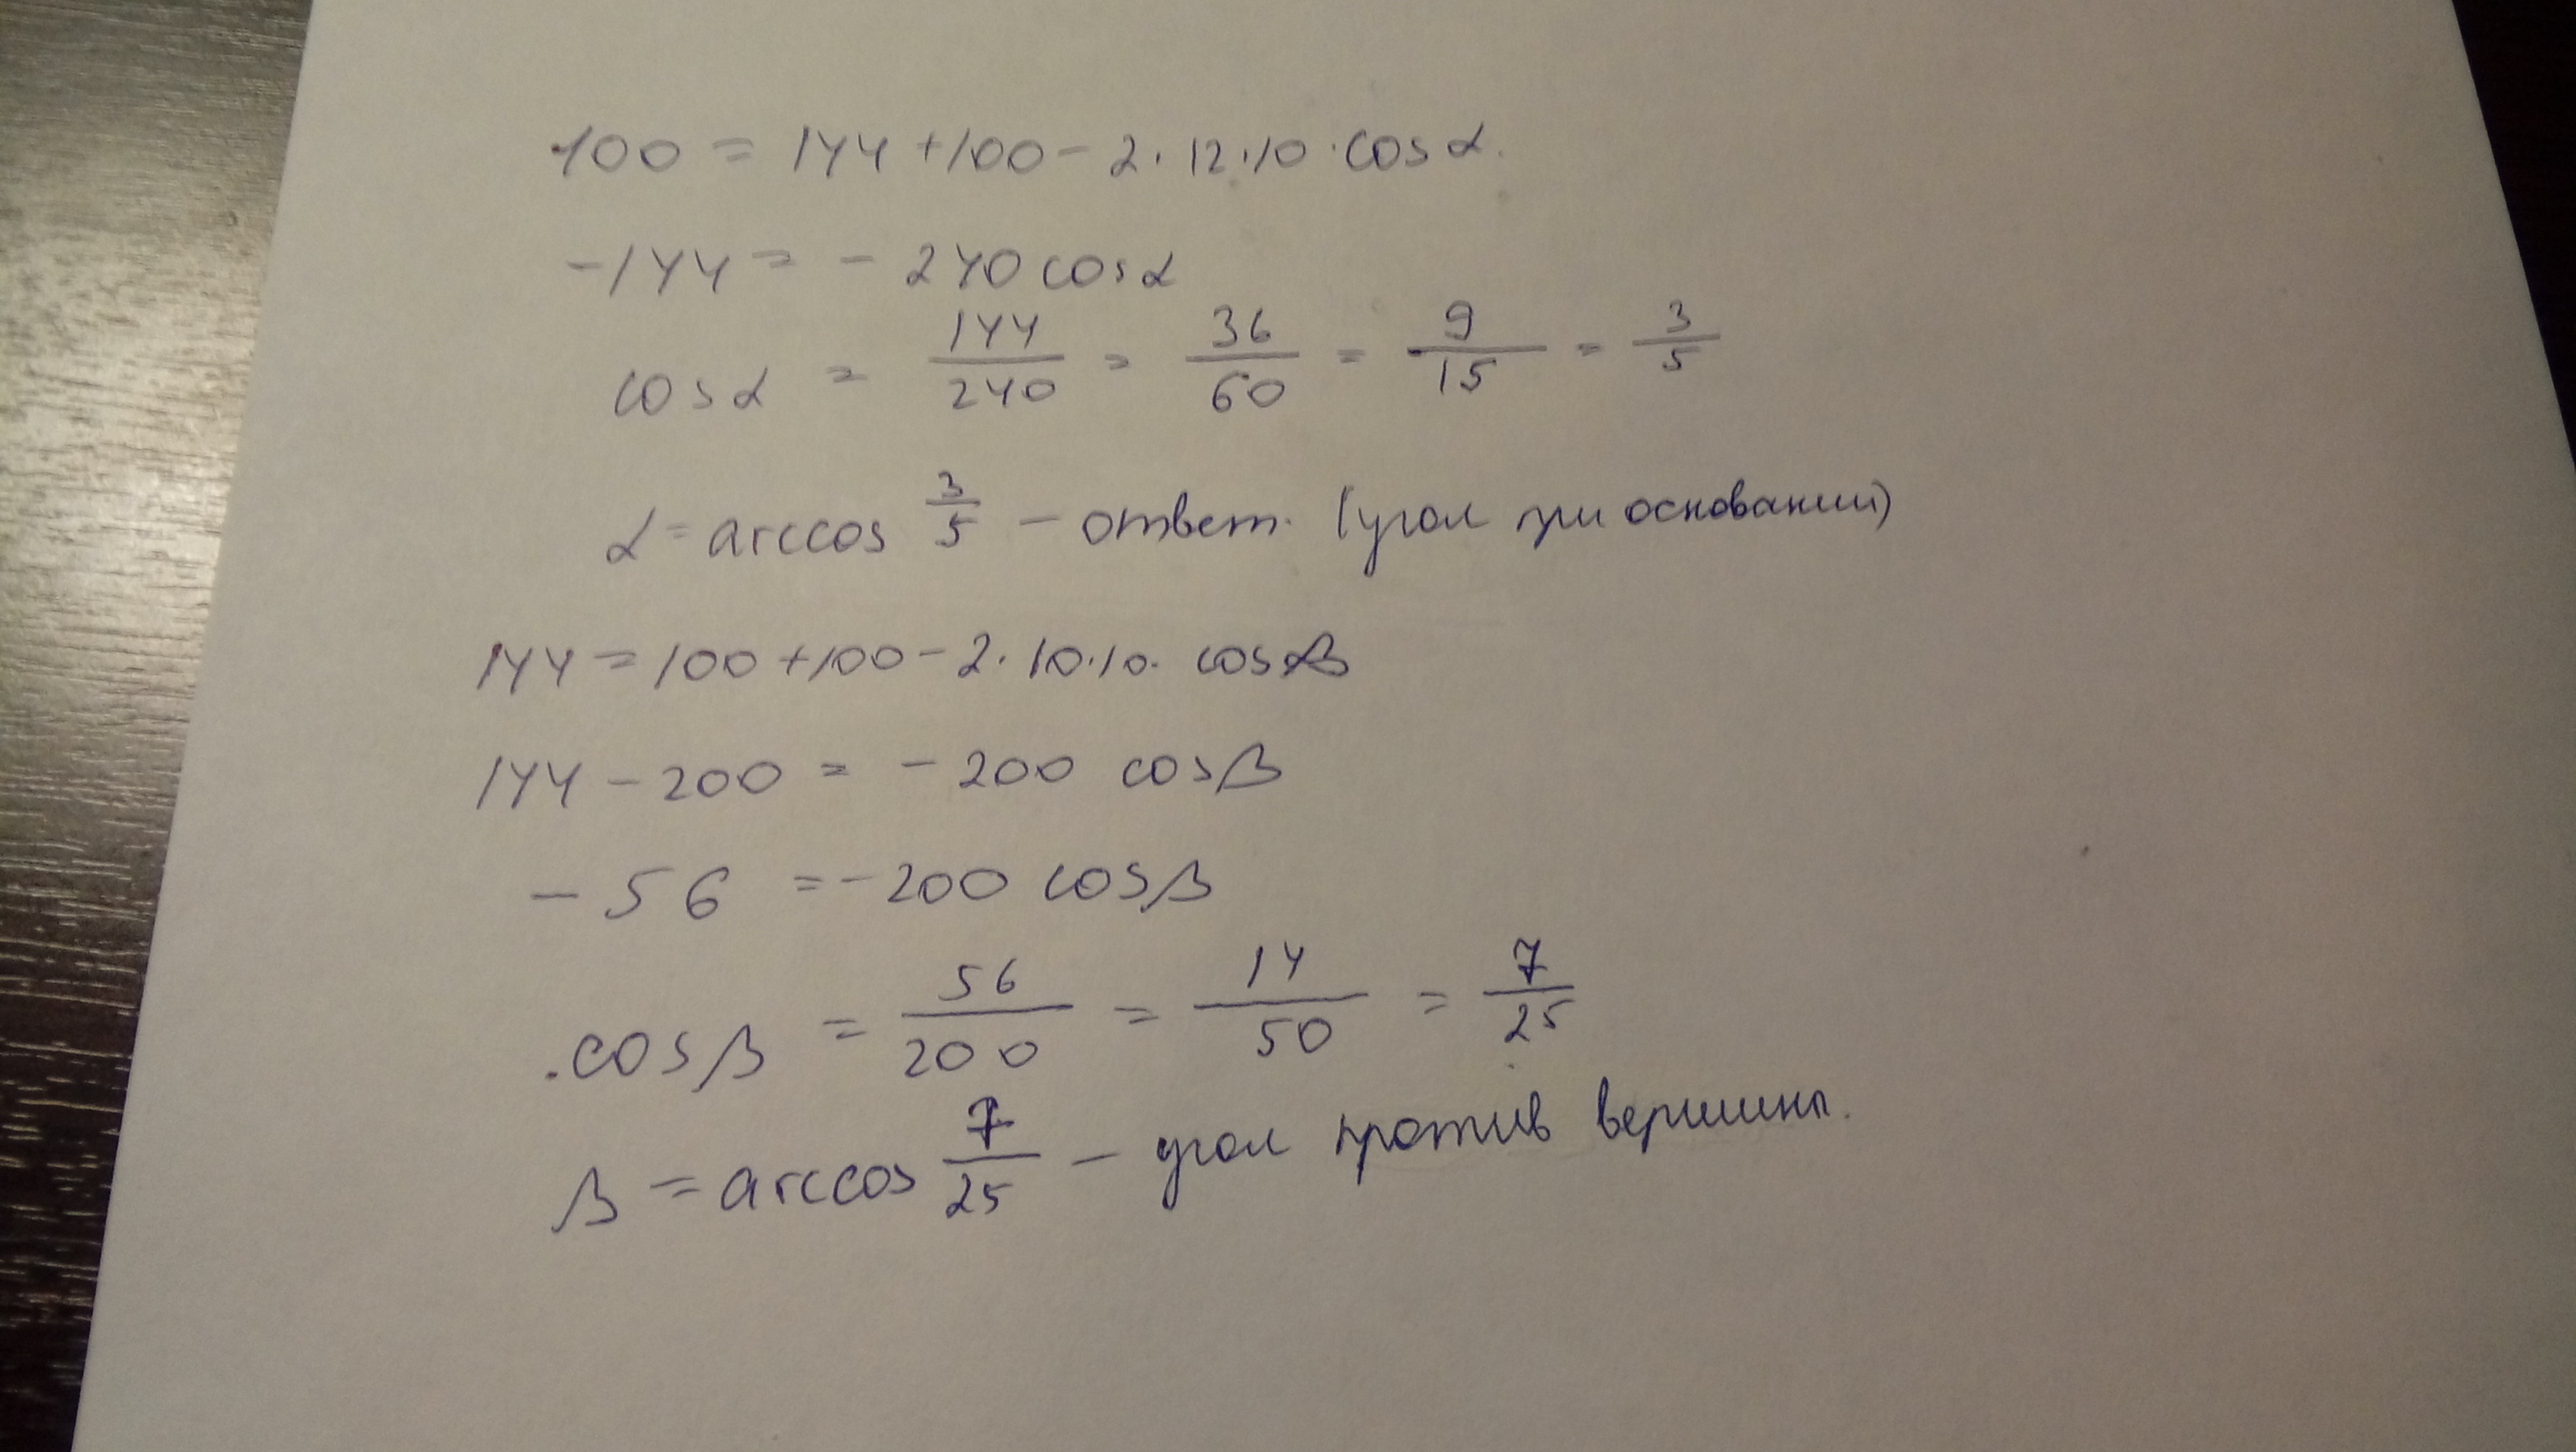 100 = 144 + 100 - 2 · 12 · 10 · cos α.
-144 = - 240 cos α
cos α = 144/240 = 36/60 = 9/15 = 3/5
α = arccos 3/5 - ответ. (угол при основании)
144 = 100 + 100 - 2 · 10 · 10 · cos β
144 - 200 = - 200 cos β
- 56 = - 200 cos β
cos β = 56/200 = 14/50 = 7/25
β = arccos 7/25 - угол против вершины.